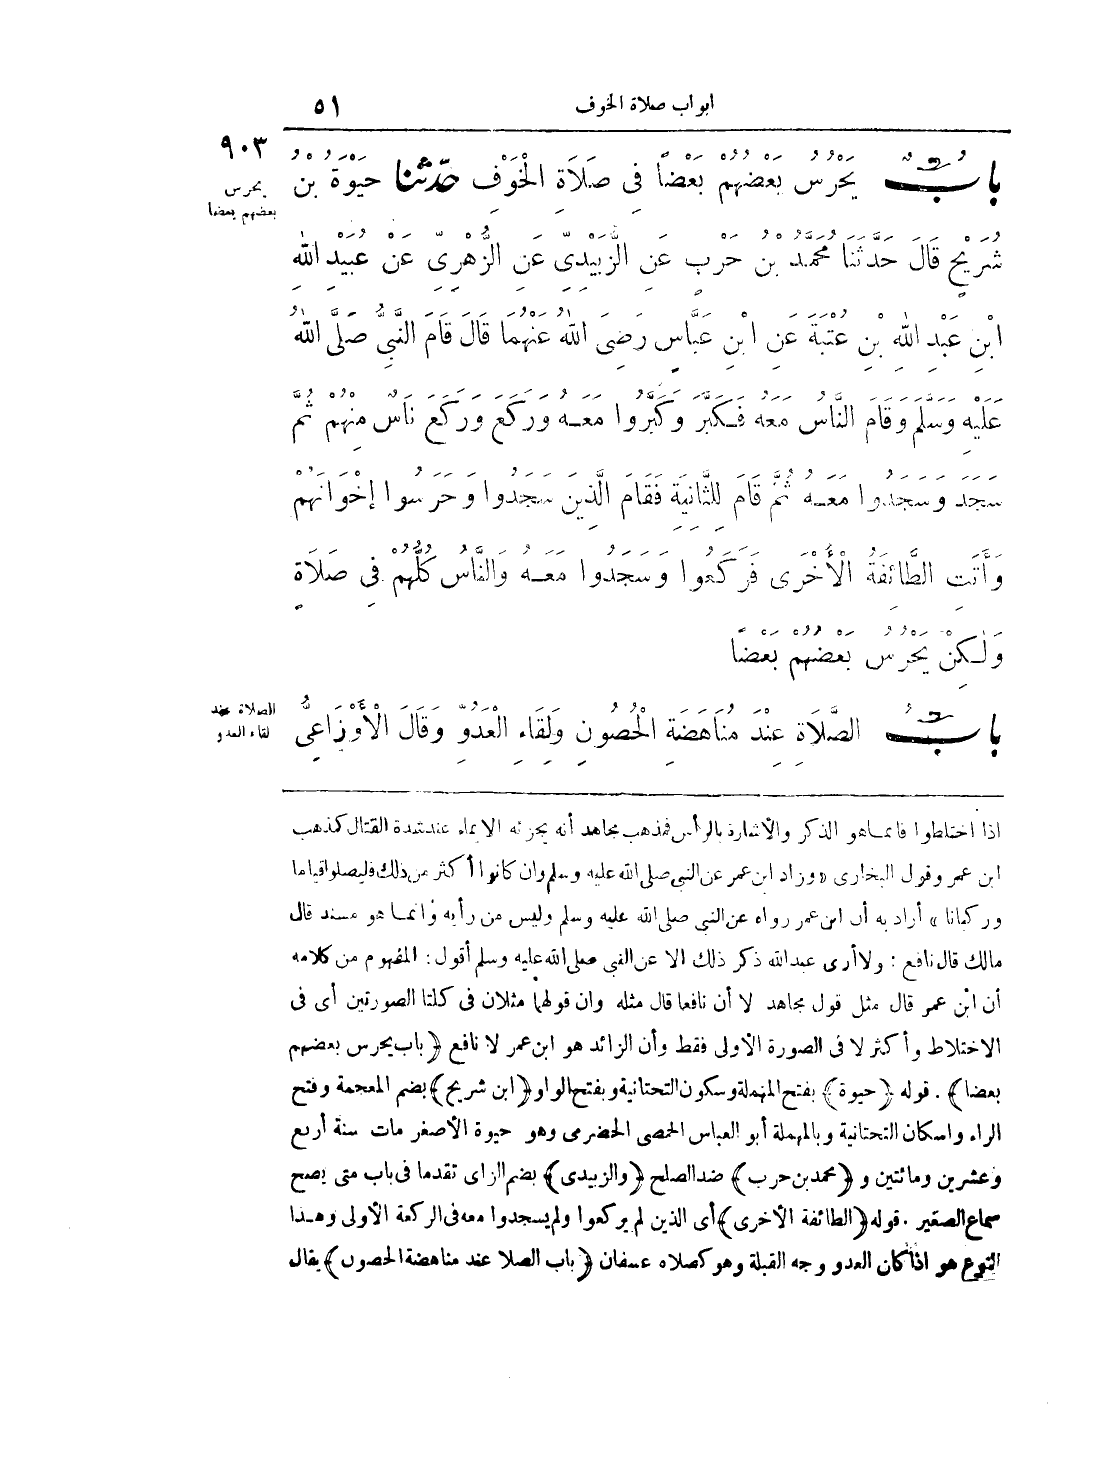 ابواب صلاة الخوف ٥١
٩٠٣
يحرس
بعضهم بعضا
بابٌ يَحْرُسُ بَعْضُهُمْ بَعْضًا فِى صَلَاةِ الْخَوْفِ حَدَّثَنَا حَيْوَةُ بْنُ
شُرَيْحٍ قَالَ حَدَّثَنَا مُحَمَّدُ بْنُ حَرْبٍ عَنِ الزُّبَيْدِىِّ عَنِ الزُّهْرِىِّ عَنْ عُبَيْدِ اللهِ
ابْنِ عَبْدِ اللهِ بْنِ عُتْبَةَ عَنِ ابْنِ عَبَّاسٍ رَضِىَ اللهُ عَنْهُمَا قَالَ قَامَ النَّبِىُّ صَلَّى اللهُ
عَلَيْهِ وَسَلَّمَ وَقَامَ النَّاسُ مَعَهُ فَكَبَّرَ وَكَبَّرُوا مَعَهُ وَرَكَعَ وَرَكَعَ نَاسٌ مِنْهُمْ ثُمَّ
سَجَدَ وَسَجَدُوا مَعَهُ ثُمَّ قَامَ لِلثَّانِيَةِ فَقَامَ الَّذِينَ سَجَدُوا وَحَرَسُوا إِخْوَانَهُمْ
وَأَتَتِ الطَّائِفَةُ الْأُخْرَى فَرَكَعُوا وَسَجَدُوا مَعَهُ وَالنَّاسُ كُلُّهُمْ فِى صَلَاةٍ
وَلٰكِنْ يَحْرُسُ بَعْضُهُمْ بَعْضًا
الصلاة عند
لقاء العدو
بابُ الصَّلَاةِ عِنْدَ مُنَاهَضَةِ الْحُصُونِ وَلِقَاءِ الْعَدُوِّ وَقَالَ الْأَوْزَاعِىُّ
اذا اختلطوا فانما هو الذكر والاشارة بالرأس فمذهب مجاهد أنه يجزئه الايماء عند شدة القتال كمذهب
ابن عمر وقول البخارى «وزاد ابن عمر عن النبى صلى الله عليه وسلم وان كانوا أكثر من ذلك فليصلوا قياما
وركبانا» أراد به أن ابن عمر رواه عن النبى صلى الله عليه وسلم وليس من رأيه وانما هو مسند قال
مالك قال نافع : ولا أرى عبدالله ذكر ذلك الا عن النبى صلى الله عليه وسلم أقول : المفهوم من كلامه
أن ابن عمر قال مثل قول مجاهد لا أن نافعا قال مثله وان قولهما مثلان فى كلتا الصورتين أى فى
الاختلاط وأكثر لا فى الصورة الاولى فقط وأن الزائد هو ابن عمر لا نافع ﴿باب يحرس بعضهم
بعضا﴾ . قوله ﴿حيوة﴾ بفتح المهملة وسكون التحتانية وبفتح الواو ﴿ابن شريح﴾ بضم المعجمة وفتح
الراء واسكان التحتانية وبالمهملة أبو العباس الحمصى الحضرمى وهو حيوة الأصغر مات سنة أربع
وعشرين ومائتين و ﴿محمد بن حرب﴾ ضد الصلح ﴿والزبيدى﴾ بضم الزاى تقدما فى باب متى يصح
سماع الصغير . قوله ﴿الطائفة الأخرى﴾ أى الذين لم يركعوا ولم يسجدوا معه فى الركعة الأولى وهذا
النوع هو اذا كان العدو وجه القبلة وهو كصلاه عسفان ﴿باب الصلا عند مناهضة الحصون﴾ يقال